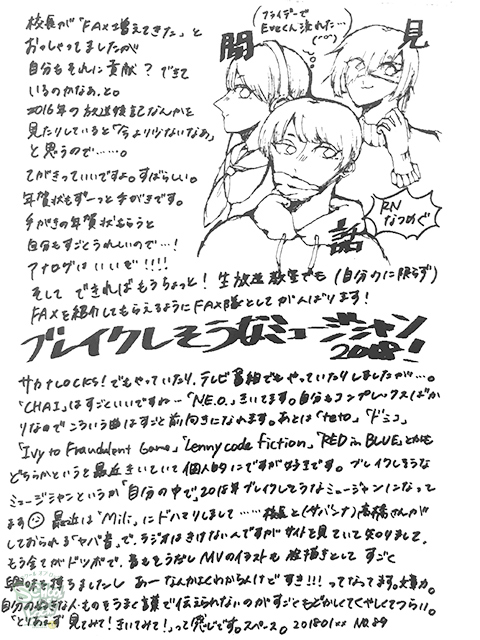 校長が「FAX増えてきた」と
おっしゃってましたが
自分もそれに貢献？できて
いるのかなあ、と。
2016年の放送後記なんかを
見たりしていると「今より少ないなあ」
と思うので……。
てがきっていいですよ。すばらしい。
年賀状もずーっと手がきです。
手がきの年賀状もらうと
自分もすごくうれしいので…！
アナログはいいぞ!!!!
そして できればもうちょっと！生放送教室でも（自分のに限らず）
FAXを紹介してもらえるようにFAX隊としてがんばります！
フライデーで
Eveくん流れた…
聞
見
話
RN
なつめぐ
ブレイクしそうなミュージシャン
2018！
サカナLOCKS！でもやっていたり、テレビ番組でもやっていたりしましたが…。
「CHAI」はすごくいいですねー「N.E.O.」きいてます。自分もコンプレックスばか
りなのでこういう曲はすごく前向きになれます。あとは「teto」「ドミコ」
「Ivy to Fraudulent Game」「Lenny code fiction」「RED in BLUE」とかも
どちらかというと最近きいていて個人的にですが好きです。ブレイクしそうな
ミュージシャンというか「自分の中で2018年ブレイクしそうなミュージシャン」になって
ます 最近は「Mili」にドハマりしまして……校長と（サバンナ）高橋さんが
しておられる「ヤバ音」で、ラジオはきけないんですがサイトを見ていて知りまして。
もう全てがドツボで、音もそうだしMVのイラストも 故描きとして すごく
興味を持ちましたし あー なんかよくわからんけどすき!!! ってなってます。大魅力。
自分の好きな人・ものをうまく言葉で伝えられないのがすごくもどかしくてくやしくてつらい。
「とりあえず見てみて！きいてみて！」って感じです。スペース。201801×× No.89